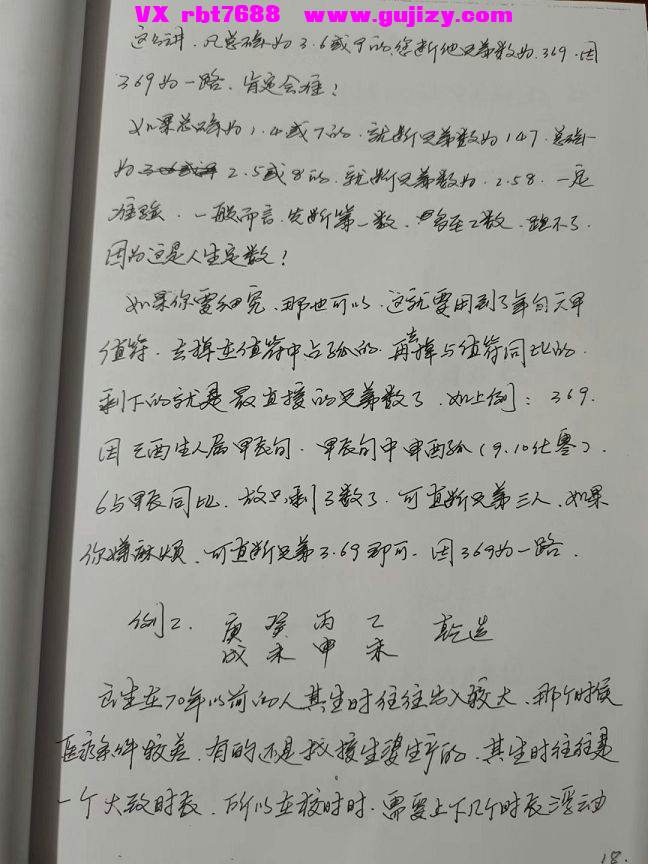 VX rbt7688 www.gujizy.com
这与讲.凡总确为3.6或9的.您断他兄弟数为.369.因
369为一路.肯定会准!
如果总确为1.4或7的.就断兄弟数为147.总确
为2.5或8的.就断兄弟数为.2.58.一定
准确.一般而言.先断第一数.多至2数.跑不了.
因为这是人生定数!
如果你要细究.那也可以.这就要用到了年旬六甲
值符.去掉在值符中占孤的.再去掉与值符同比的.
剩下的就是最直接的兄弟数了.如上例:369.
因己酉生人属甲辰旬.甲辰旬中申酉孤(9.10代零).
6与甲辰同比.故只剩了3数了.可直断兄弟三人.如果
你嫌麻烦.可直断兄弟3.69即可.因369为一路.
例2. 庚 癸 丙 乙 乾造
戌 未 申 未
出生在70年以前的人其生时往往出入较大.那个时候
医疗条件较差.有的还是找接生婆生产的.其生时往往是
一个大致时辰.所以在校时时.需要上下几个时辰浮动
18.